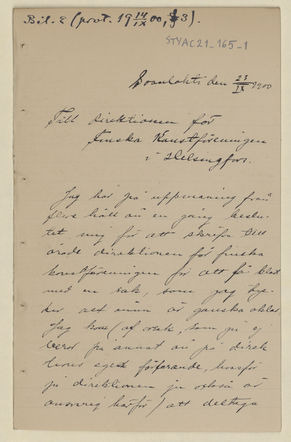 Bil. 2 (prot. 19 14/IX 00, § 3).
STYAC21_165-1
23/IX 1900
Till direktionen för
finska Konstföreningen
i Helsingfors.
Jag har på uppmaning från
flere håll än en gång beslu-
tet mig för att skrifva till
ärade direktionen för finska
konstföreningen för att få klar
med en sak, som jag ty-
der att ännu är ganska oklar
Jag har (af orsak, som på ej
beror på annat än på direk
tionens eget förfarande, hvarför
direktionen ju också är
ansvarig härför) att deltaga